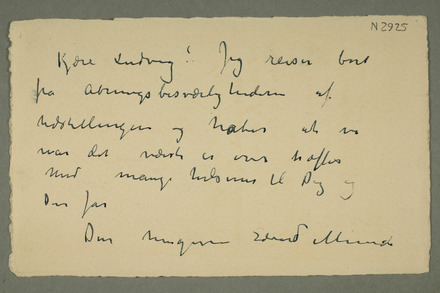 N 2925
Kjære Ludvig! Jeg reiser bort
fra Abningsbesværlighederne af
Udstillingen og haaber at vi
naar det værste er over træffes
Med mange hilsener til Dig og
Din far
Din hengivne Edvard Munch